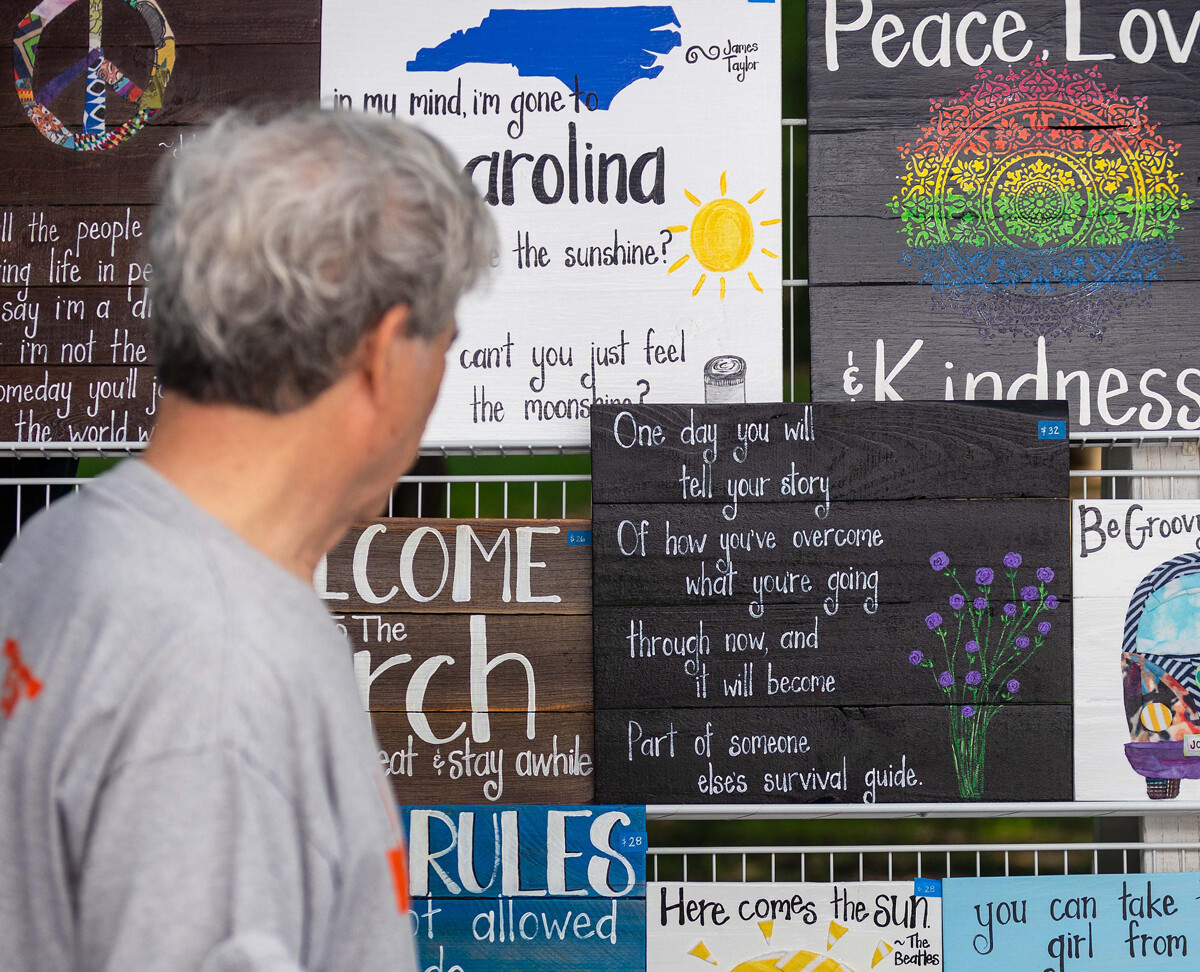 ll the people
ing life in pe
say i'm a d
i'm not the
omeday you'll jo
the world w
James
Taylor
in my mind, i'm gone to
arolina
the sunshine?
can't you just feel
the moonshine?
Peace, Lov
& Kindness
LCOME
to The
rch
eat & stay awhile
$26
One day you will
tell your story
Of how you've overcome
what you're going
through now, and
it will become
Part of someone
else's survival guide.
$32
Be Groovy
JO
RULES
$28
ot allowed
Here comes the sun.
~The
Beatles
$28
you can take
girl from